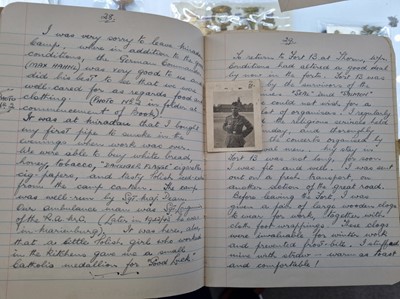 28
I was very sorry to leave
Camp, where in addition to the
conditions, the German
was very good to me and
did his best to see that we were
well cared for as regards food and
clothing. (Photo No 2 in folder at
commencement of Book).
It was at that I bought
my first pipe to smoke in the
evenings when work was over.
We were able to buy white bread,
honey, tobacco, cigarettes
cig. papers, and tasty Polish
from the camp canteen. The camp
was well run by Sgt.
our ambulance man was
of the R.A.M.C. (later in
in Marienburg). It was here also,
that a little Polish girl who worked
in the kitchens gave me a small
Catholic medallion for "Good Luck"
29
To return to Fort 13 at Thorn,
conditions had altered a good deal
by now in the forts. Fort 13 was
by the survivors of the
and
could not wish for a
of organisers. I regularly
the religious services held
day, and thoroughly
the concerts organised by
men. My stay in
Fort 13 was not long, for soon
I was fit and well. I was sent
out on a fresh transport, on
another section of the great road.
Before leaving the Fort, I was
given a pair of large wooden clogs
to wear for work, together with
cloth foot wrappings. These clogs
were invaluable for winter work
and prevented frost-bite. I stuffed
mine with straw - warm as toast
and comfortable!